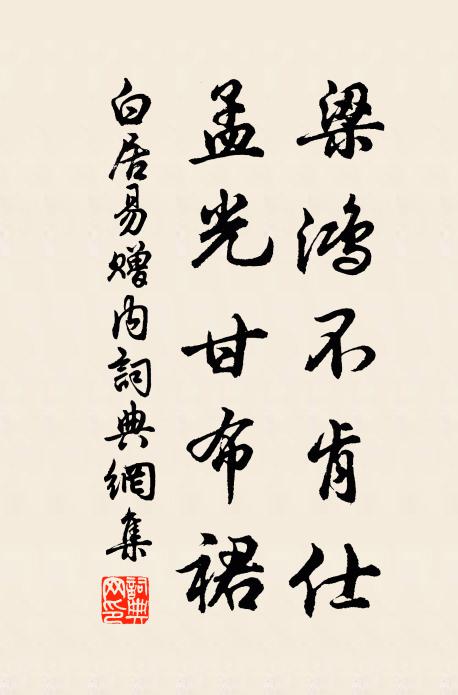 梁鸿不肯仕
孟光甘布裙
白居易赠内詞典網集
詞典